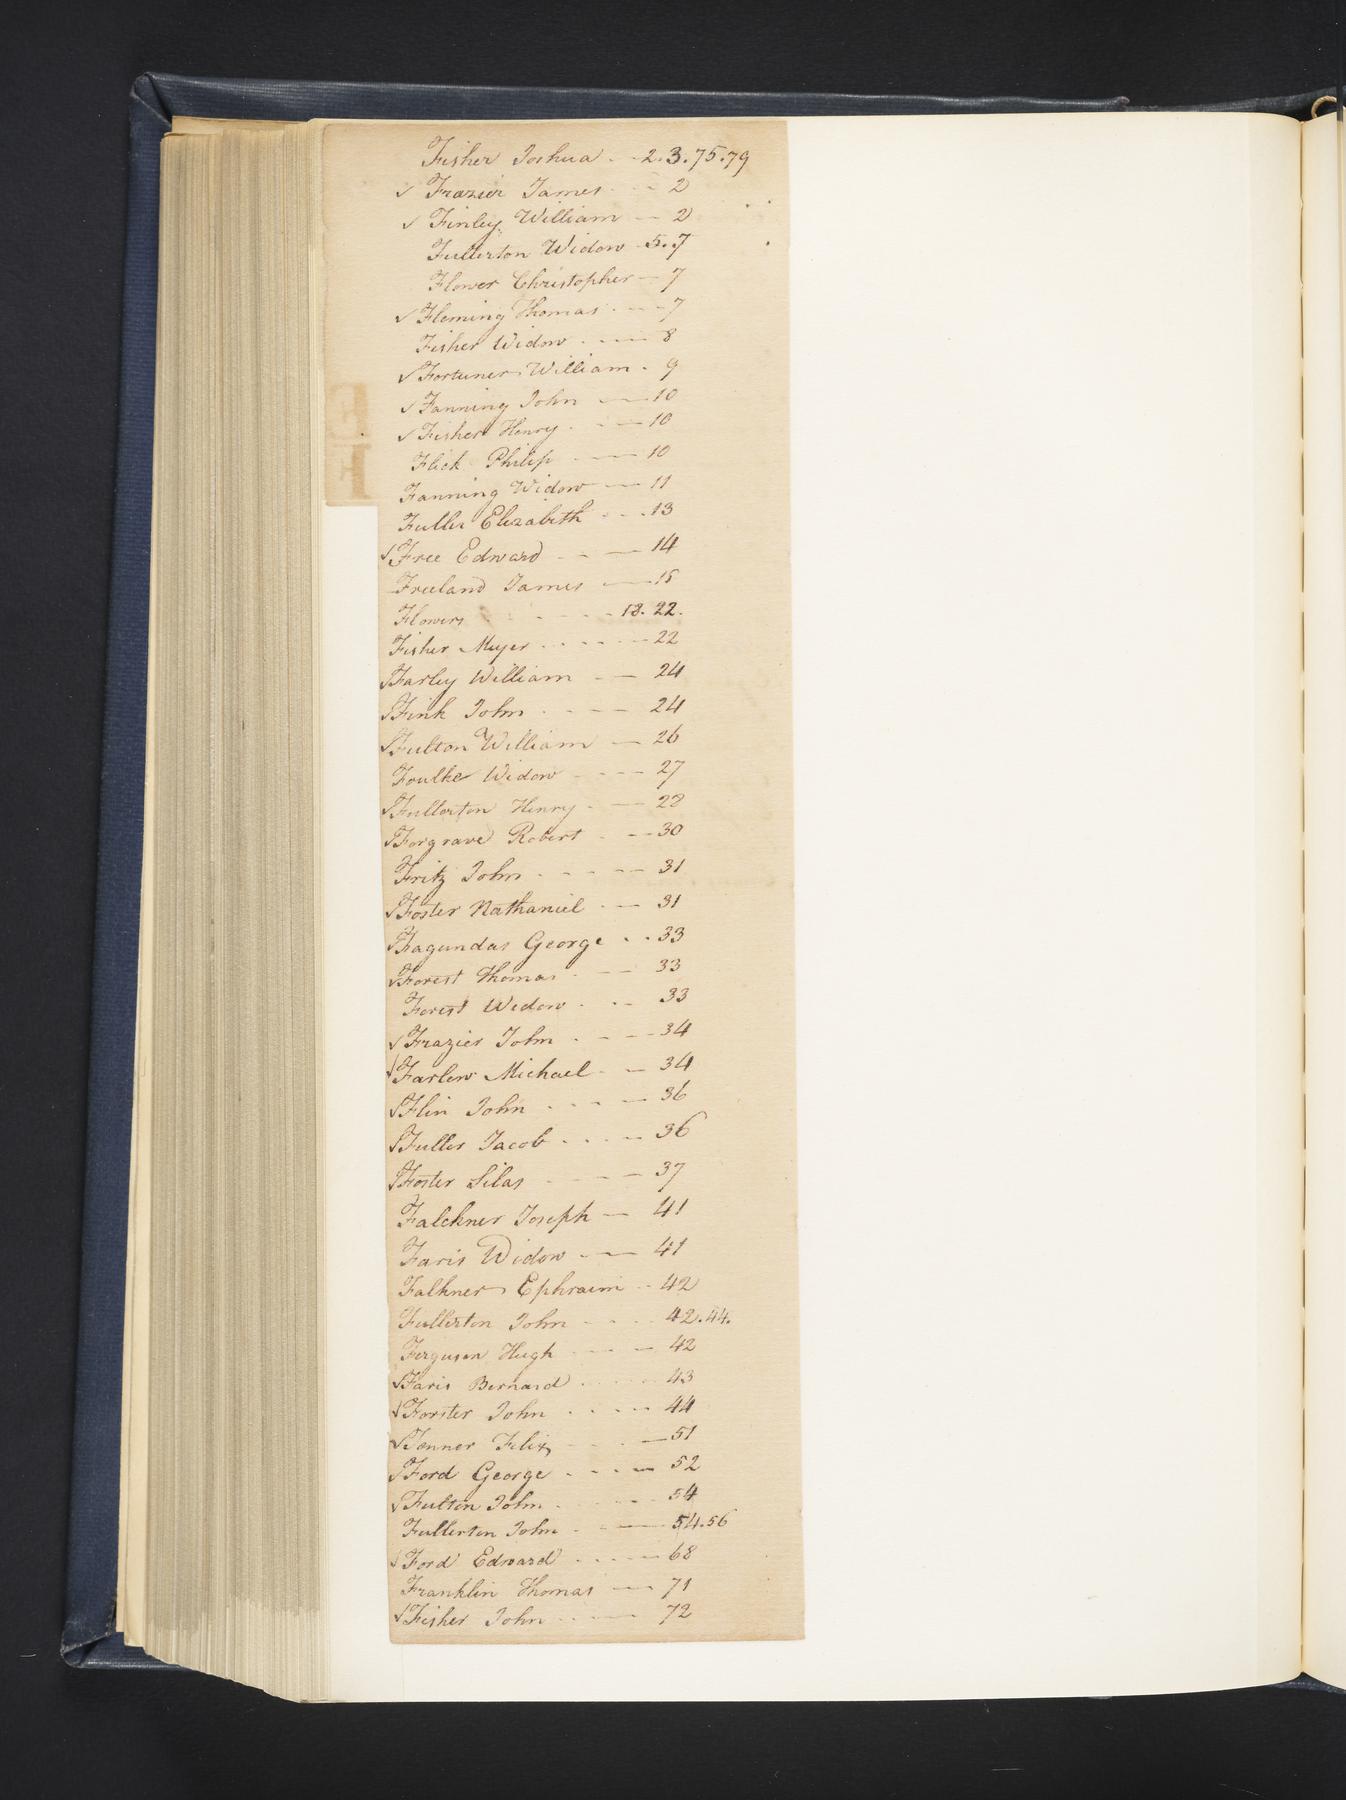 Fisher Joshua - - 2.3.75.79
✓ Frazier James - - 2
✓ Finley William - 2
Fullerton Widow - 5.7
Flower Christopher - 7
✓ Fleming Thomas - - - 7
Fisher Widow - - - 8
✓ Fortuner William - 9
✓ Fanning John - - 10
✓ Fisher Henry - - - 10
Flick Philip - - 10
Fanning Widow - - 11
Fuller Elizabeth - - - 13
✓ Free Edward - - - 14
Freeland James - - 15
Flowers - - - 18. 22.
Fisher Meyer - - - - 22
✓ Farley William - - 24
✓ Fink John - - - - 24
✓ Fulton William - 26
Foulke Widow - - - - 27
✓ Fullerton Henry - - 28
✓ Forgrave Robert - - - 30
Fritz John - - - - 31
✓ Foster Nathaniel - - 31
✓ Fagundas George - - 33
✓ Forest Thomas - - - 33
Forest Widow - - - 33
✓ Frazier John - - - 34
✓ Farlow Michael - - 34
✓ Flin John - - - - 36
✓ Fuller Jacob - - - - 36
✓ Foster Silas - - - - 37
Falckner Joseph - 41
Faris Widow - - - 41
Falkner Ephraim - - 42
Fullerton John - - - - 42.44.
Ferguson Hugh - - - 42
✓ Faris Bernard - - - - 43
✓ Forster John - - - - 44
✓ Fenner Felix - - - 51
✓ Ford George - - - - 52
✓ Fulton John - - - - 54
Fullerton John - - - 54.56
✓ Ford Edward - - - - 68
Franklin Thomas - - 71
✓ Fisher John - - - 72